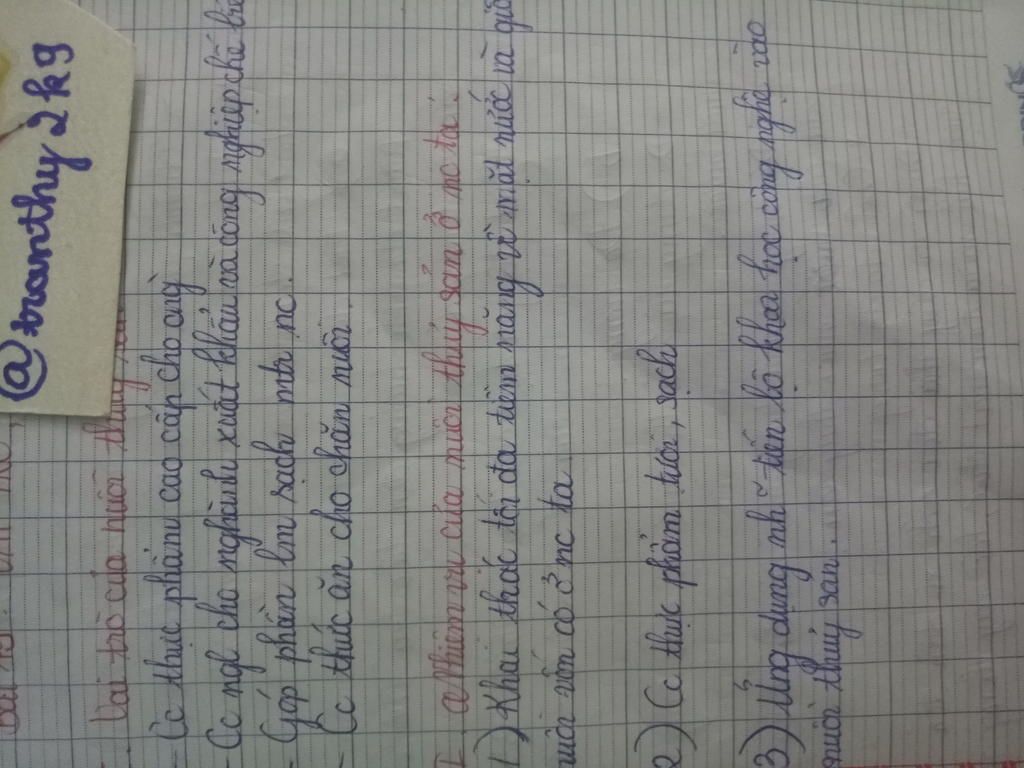 @tranthy2k9
Vai trò của nuôi thủy
- Cc thực phẩm cao cấp cho cng`
- Cc ngl cho nghành xuất khẩu và công nghiệp chế
- Góp phần lm sạch mtr nc.
- Cc thức ăn cho chăn nuôi.
Nhiệm vụ của nuôi thủy sản ở nc ta.
1) Khai thác tối đa tiềm năng về mặt nước và
nuôi vốn có ở nc ta.
2) Cc thực phẩm tươi, sạch
3) Ứng dụng nh~ tiến bộ khoa học công nghệ vào
nuôi thủy sản.